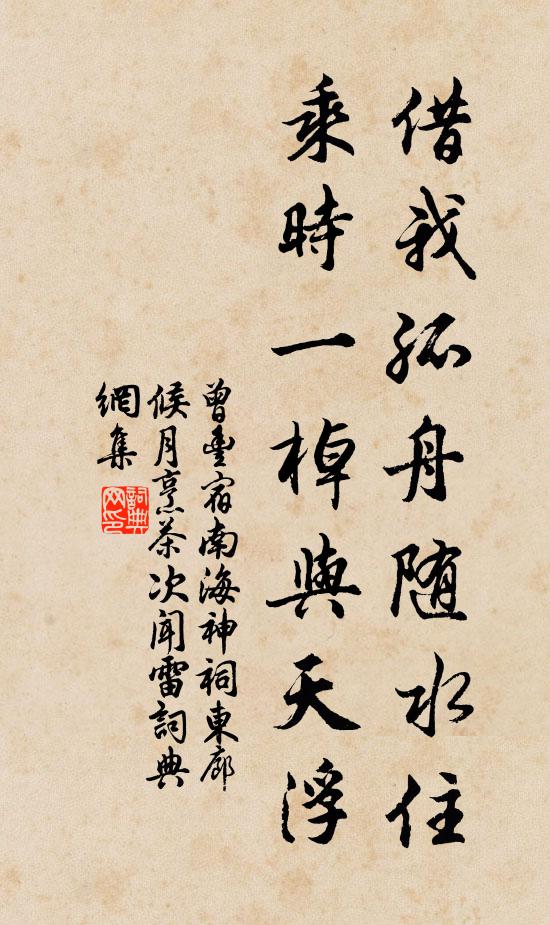 借我孤舟随水住
乘時一棹與天浮
曾豐宿南海神祠東廊
候月烹茶次聞雷詞典
網集
詞典
网印